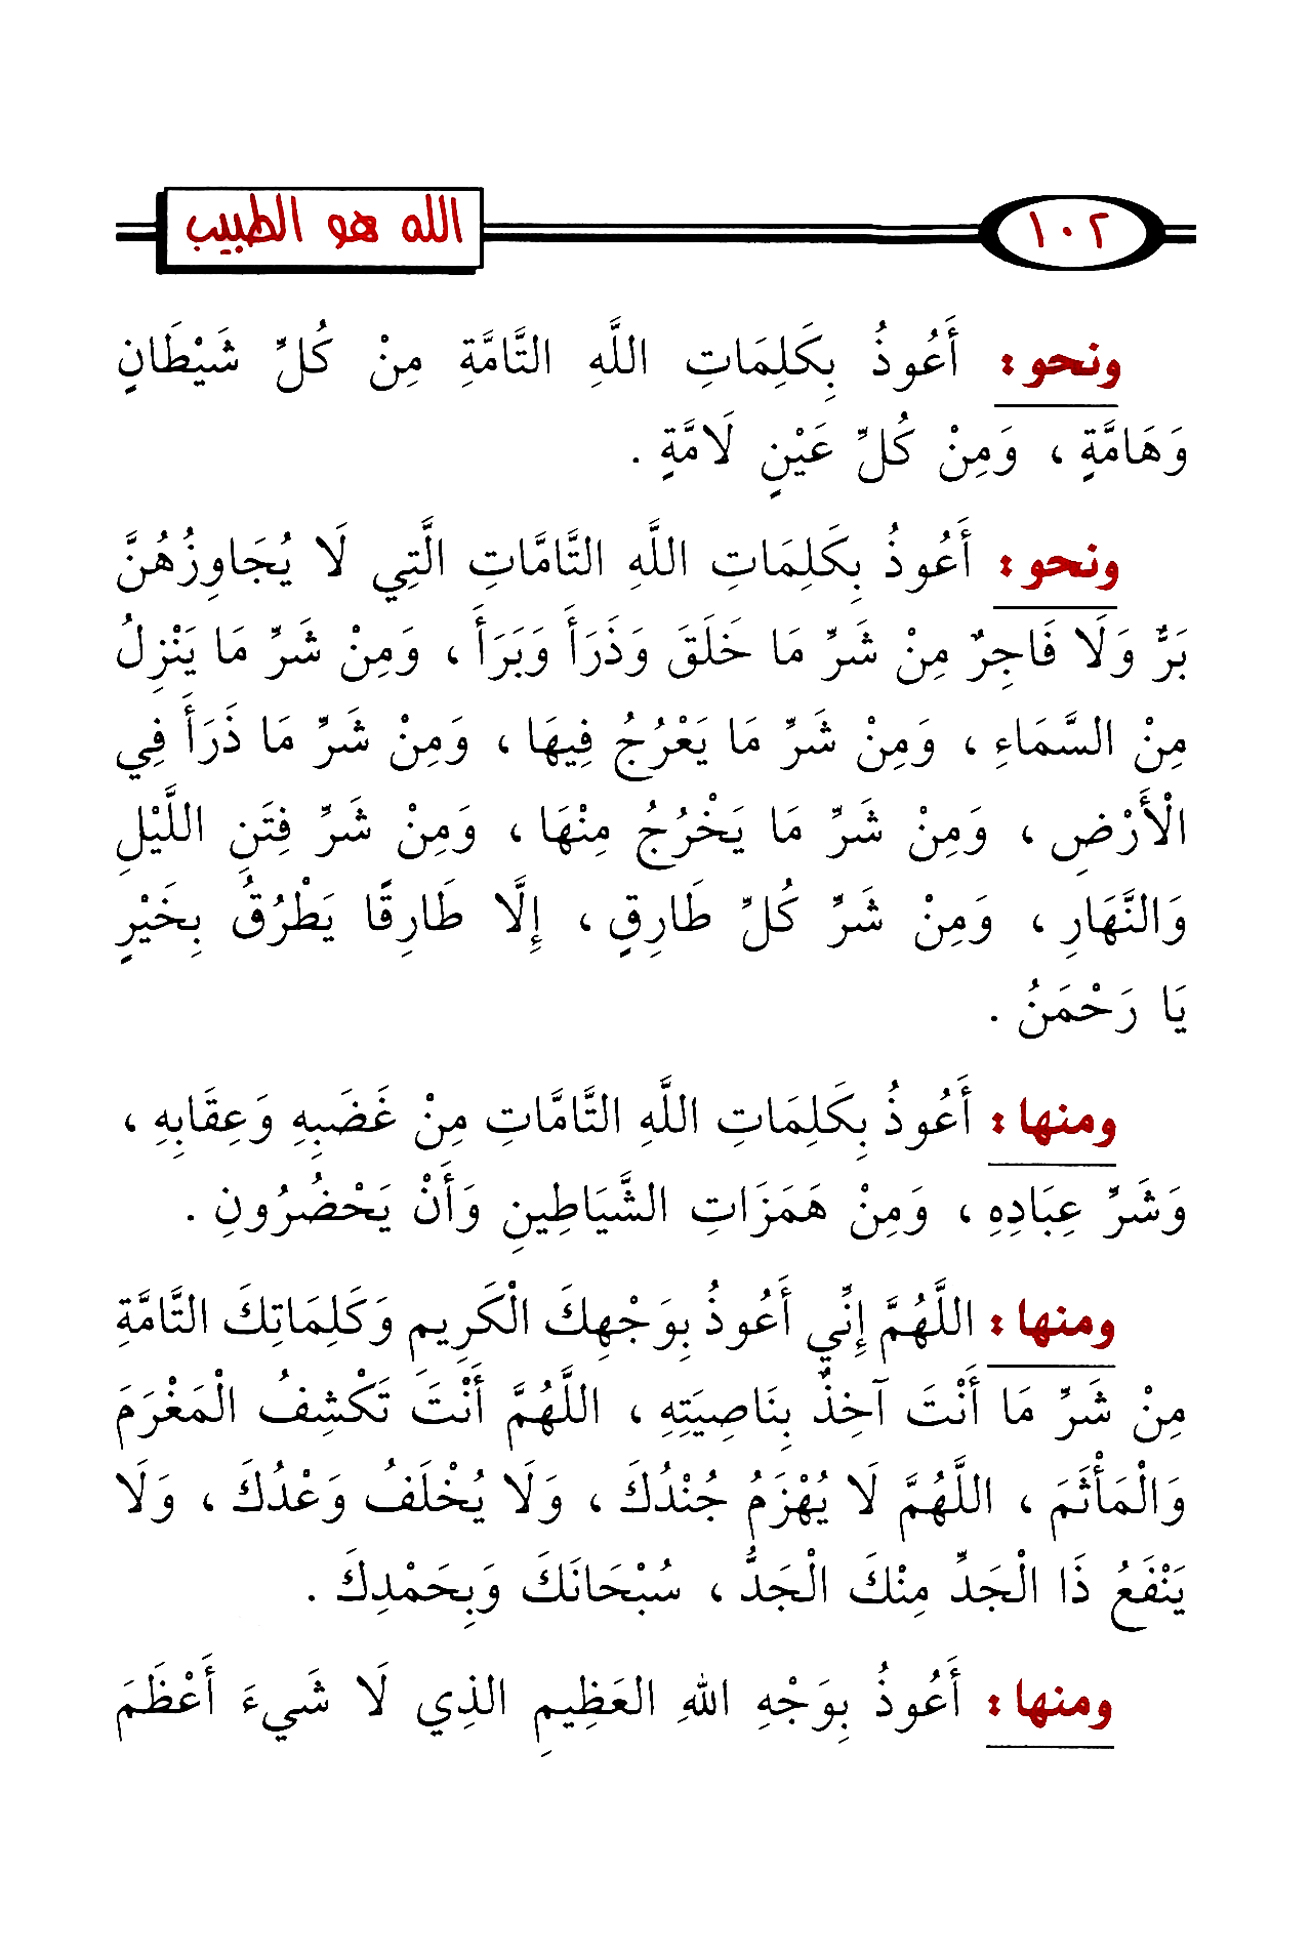 ١٠٢
الله هو الطبيب
ونحو: أَعُوذُ بِكَلِمَاتِ اللَّهِ التَّامَّةِ مِنْ كُلِّ شَيْطَانٍ
وَهَامَّةٍ ، وَمِنْ كُلِّ عَيْنٍ لَامَّةٍ .
ونحو: أَعُوذُ بِكَلِمَاتِ اللَّهِ التَّامَّاتِ الَّتِي لَا يُجَاوِزُهُنَّ
بَرٌّ وَلَا فَاجِرٌ مِنْ شَرِّ مَا خَلَقَ وَذَرَأَ وَبَرَأَ ، وَمِنْ شَرِّ مَا يَنْزِلُ
مِنْ السَّمَاءِ ، وَمِنْ شَرِّ مَا يَعْرُجُ فِيهَا ، وَمِنْ شَرِّ مَا ذَرَأَ فِي
الْأَرْضِ ، وَمِنْ شَرِّ مَا يَخْرُجُ مِنْهَا ، وَمِنْ شَرِّ فِتَنِ اللَّيْلِ
وَالنَّهَارِ ، وَمِنْ شَرِّ كُلِّ طَارِقٍ ، إِلَّا طَارِقًا يَطْرُقُ بِخَيْرٍ
يَا رَحْمَنُ .
ومنها: أَعُوذُ بِكَلِمَاتِ اللَّهِ التَّامَّاتِ مِنْ غَضَبِهِ وَعِقَابِهِ ،
وَشَرِّ عِبَادِهِ ، وَمِنْ هَمَزَاتِ الشَّيَاطِينِ وَأَنْ يَحْضُرُونِ .
ومنها: اللَّهُمَّ إِنِّي أَعُوذُ بِوَجْهِكَ الْكَرِيمِ وَكَلِمَاتِكَ التَّامَّةِ
مِنْ شَرِّ مَا أَنْتَ آخِذٌ بِنَاصِيَتِهِ ، اللَّهُمَّ أَنْتَ تَكْشِفُ الْمَغْرَمَ
وَالْمَأْثَمَ ، اللَّهُمَّ لَا يُهْزَمُ جُنْدُكَ ، وَلَا يُخْلَفُ وَعْدُكَ ، وَلَا
يَنْفَعُ ذَا الْجَدِّ مِنْكَ الْجَدُّ ، سُبْحَانَكَ وَبِحَمْدِكَ .
ومنها: أَعُوذُ بِوَجْهِ اللهِ العَظِيمِ الذِي لَا شَيءَ أَعْظَمَ